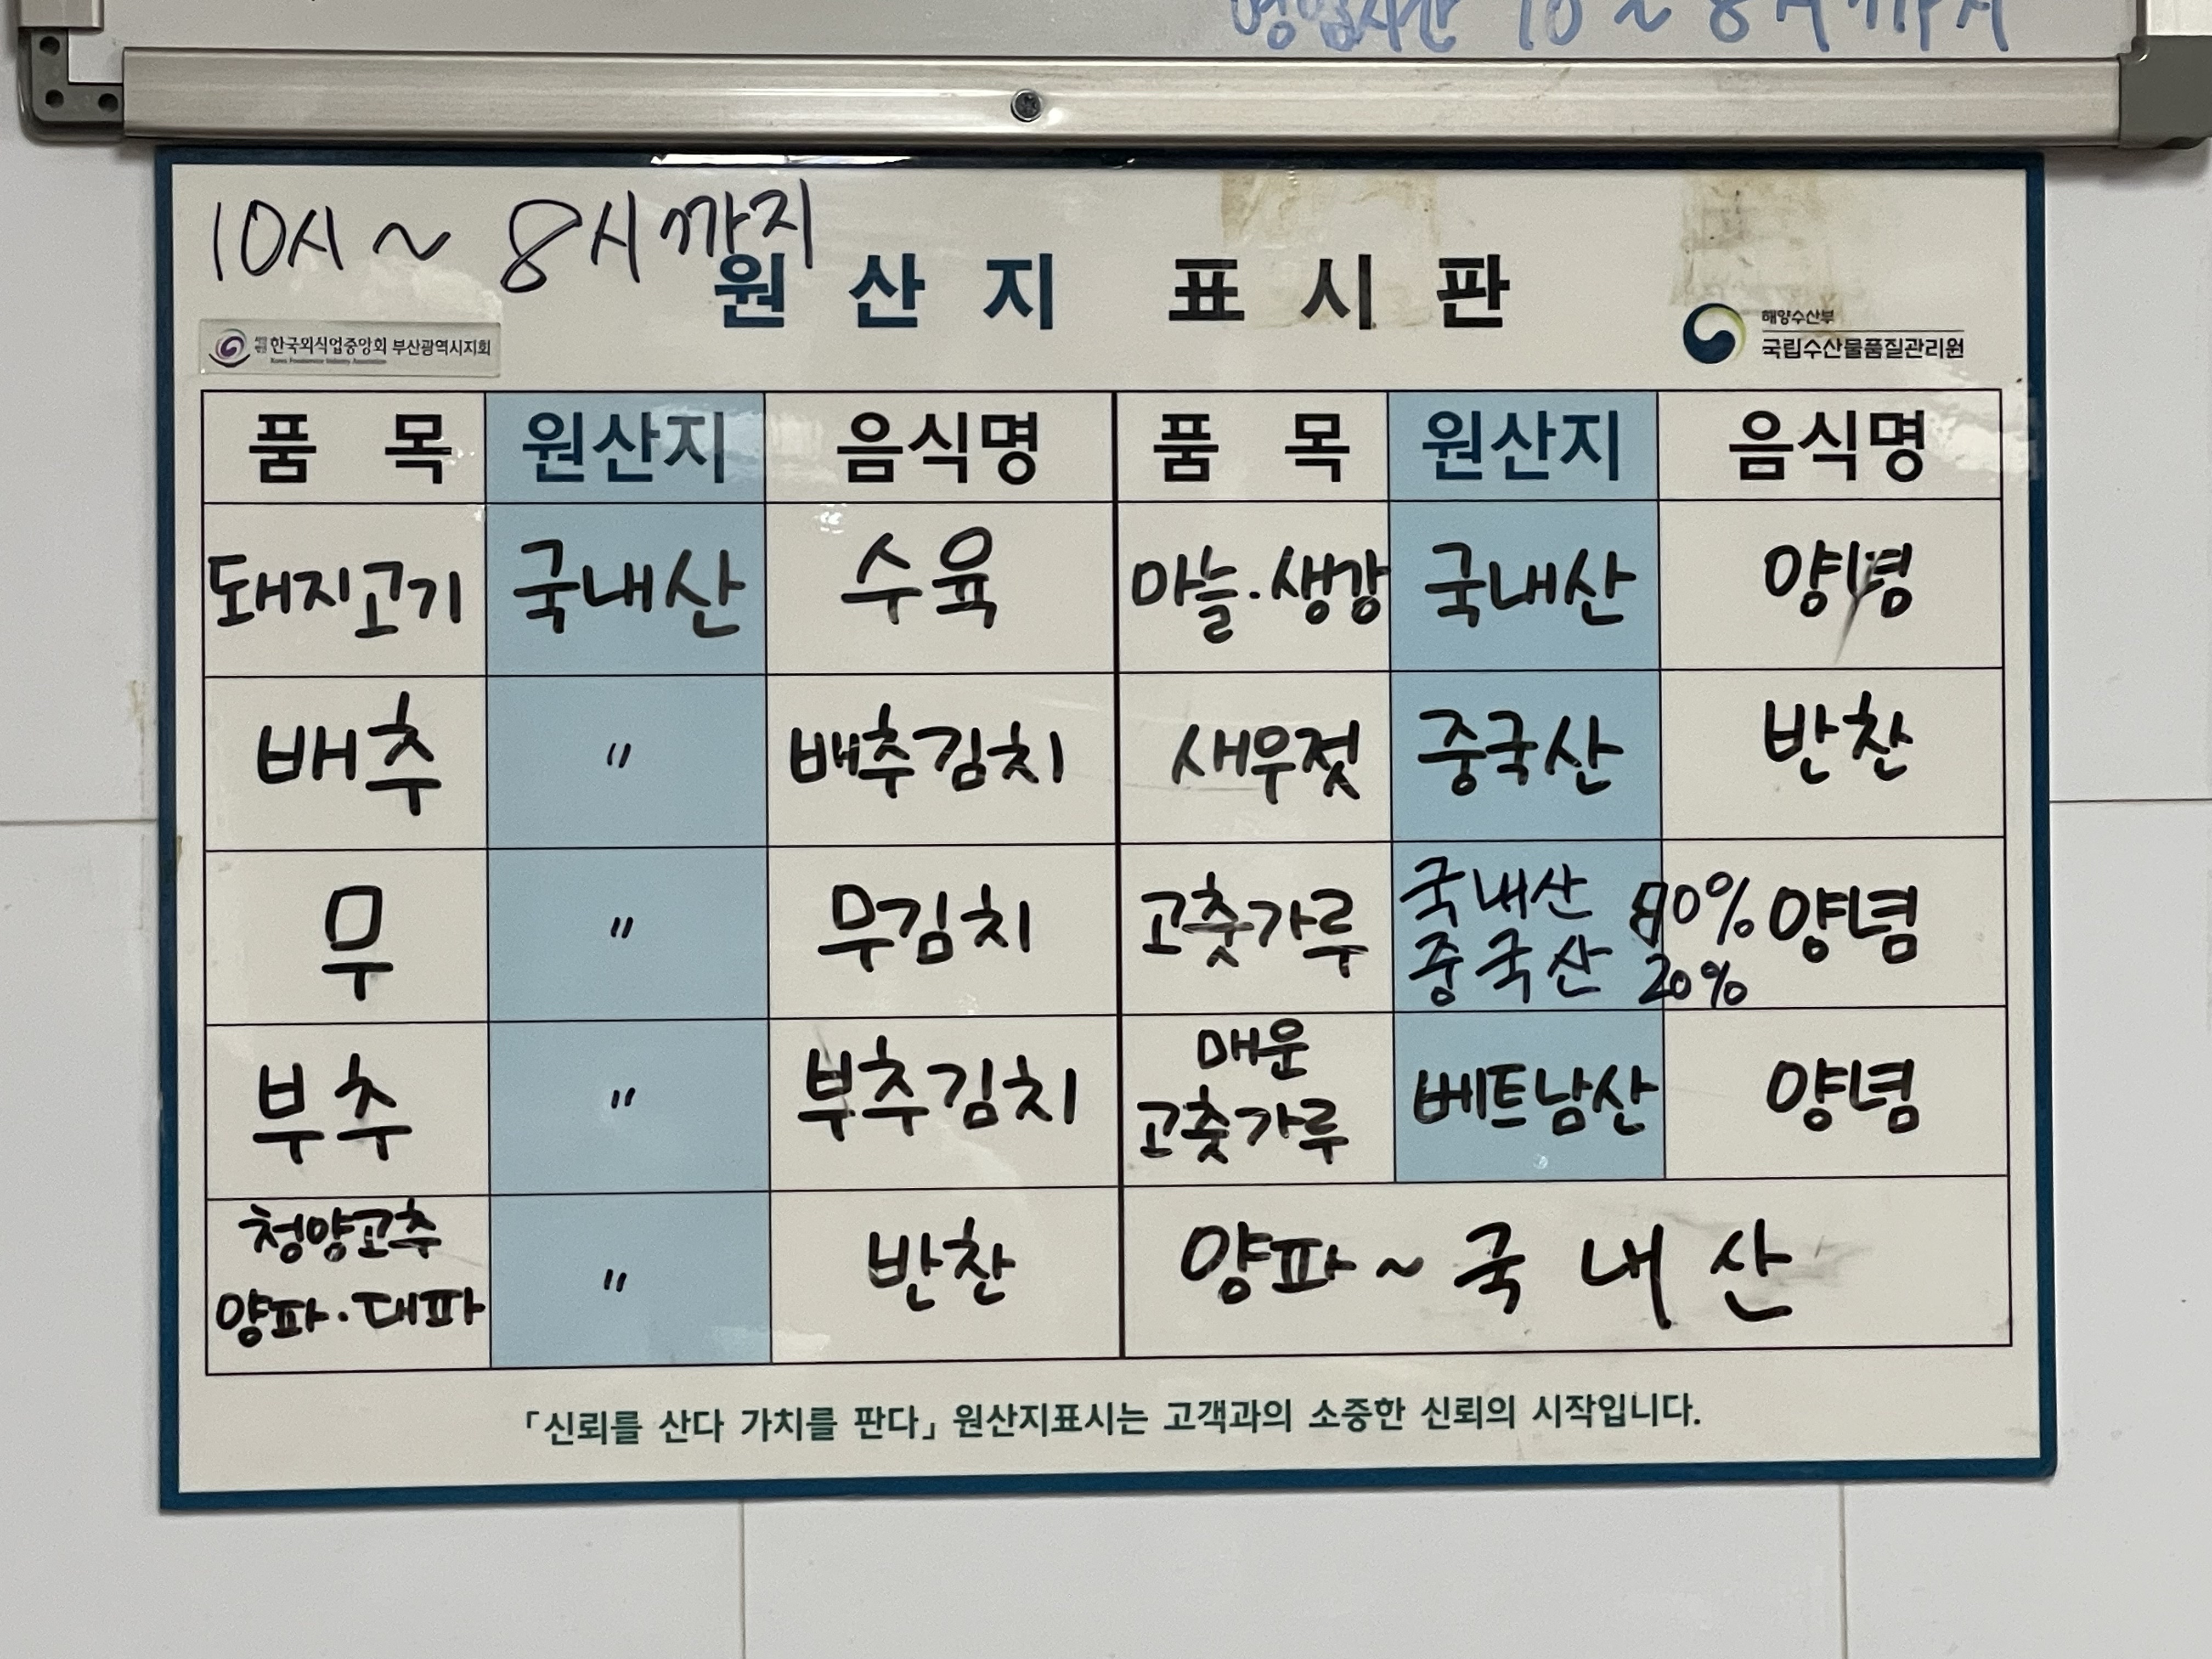 영업시간 10~8시까지
10시~8시까지
원산지 표시판
한국외식업중앙회 부산광역시지회
Korea Foodservice Industry Association
해양수산부
국립수산물품질관리원
품목 원산지 음식명 품목 원산지 음식명
돼지고기 국내산 수육 마늘·생강 국내산 양념
배추 〃 배추김치 새우젓 중국산 반찬
무 〃 무김치 고춧가루 국내산 80% 양념
중국산 20%
부추 〃 부추김치 매운 고춧가루 베트남산 양념
청양고추
양파·대파 〃 반찬 양파~국내산
「신뢰를 산다 가치를 판다」 원산지표시는 고객과의 소중한 신뢰의 시작입니다.